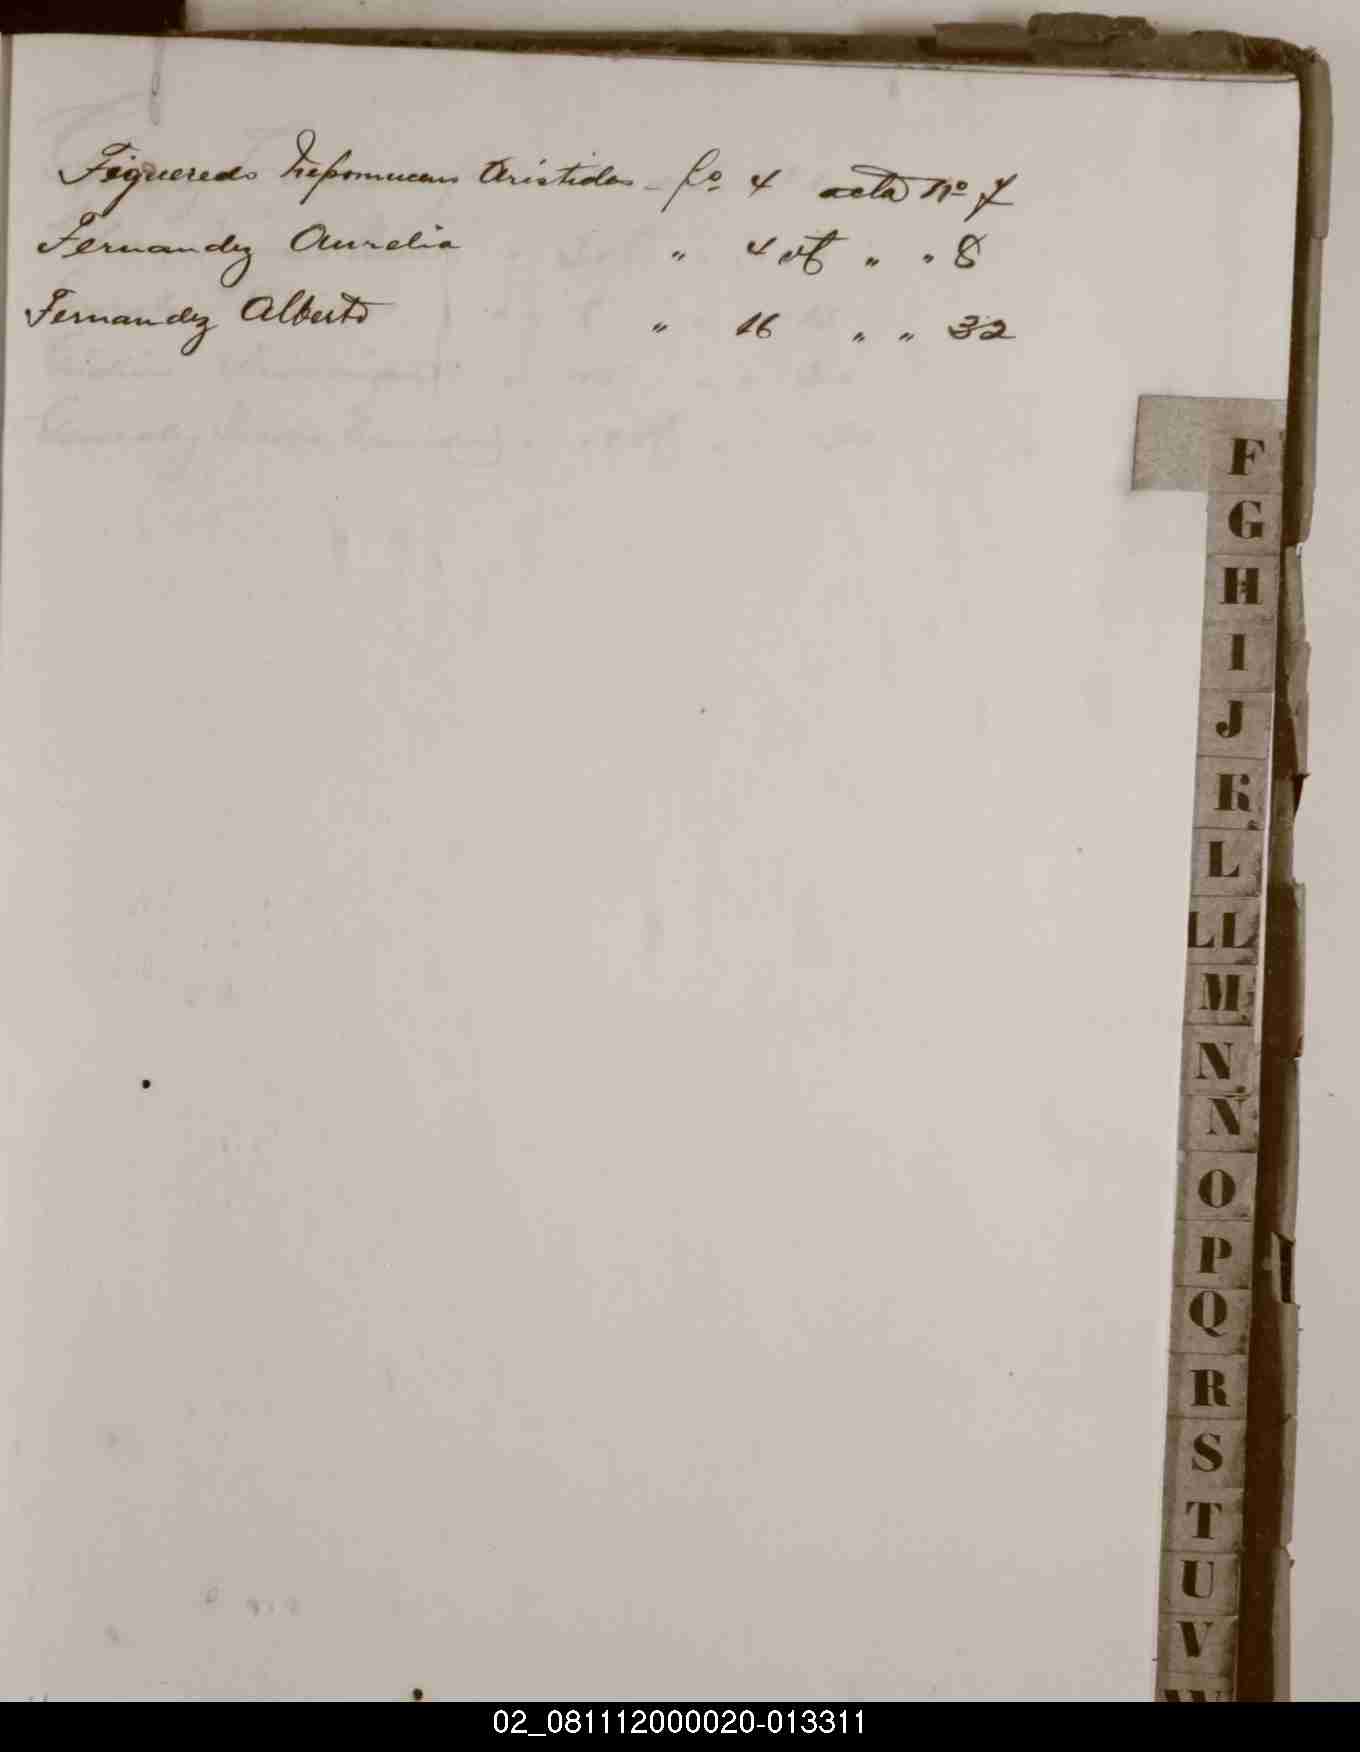 Figueredo Nepomuceno Aristides - fo. 4 acta No. 7
Fernandez Aurelia " 4 vt " " 8
Fernandez Alberto " 16 " " 32
F
G
H
I
J
K
L
LL
M
N
Ñ
O
P
Q
R
S
T
U
V
W
02_081112000020-013311